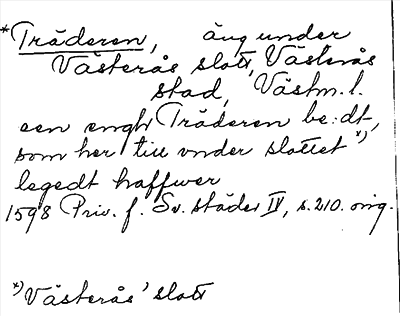 *Träderen, äng under
Västerås slott, Västerås
stad, Västm. l.
een engh Träderen be:dt,
som her till vnder slottet *)
legedt haffwer
1598 Priv. f. Sv. städer IV, s. 210. orig.
*) Västerås' slott